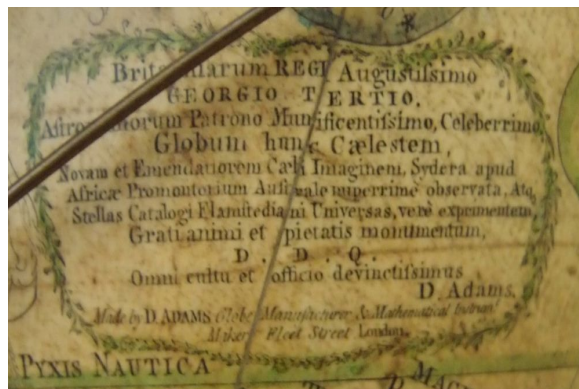 Britanniarum REGI Augustissimo
GEORGIO TERTIO,
Astronomorum Patrono Munificentissimo, Celeberrimo
Globum hunc Cælestem,
Novam et Emendatiorem Cæli Imaginem, Sydera apud
Africæ Promontorium Australe nuperrime observata, Atq.
Stellas Catalogi Flamstediani Universas, vere exprimentem
Grati animi et pietatis monumentum,
D. D. Q.
Omni cultu et officio devinctissimus
D. Adams.
Made by D. ADAMS Globe Manufacturer & Mathematical Instrumt
Maker Fleet Street London.
PYXIS NAUTICA